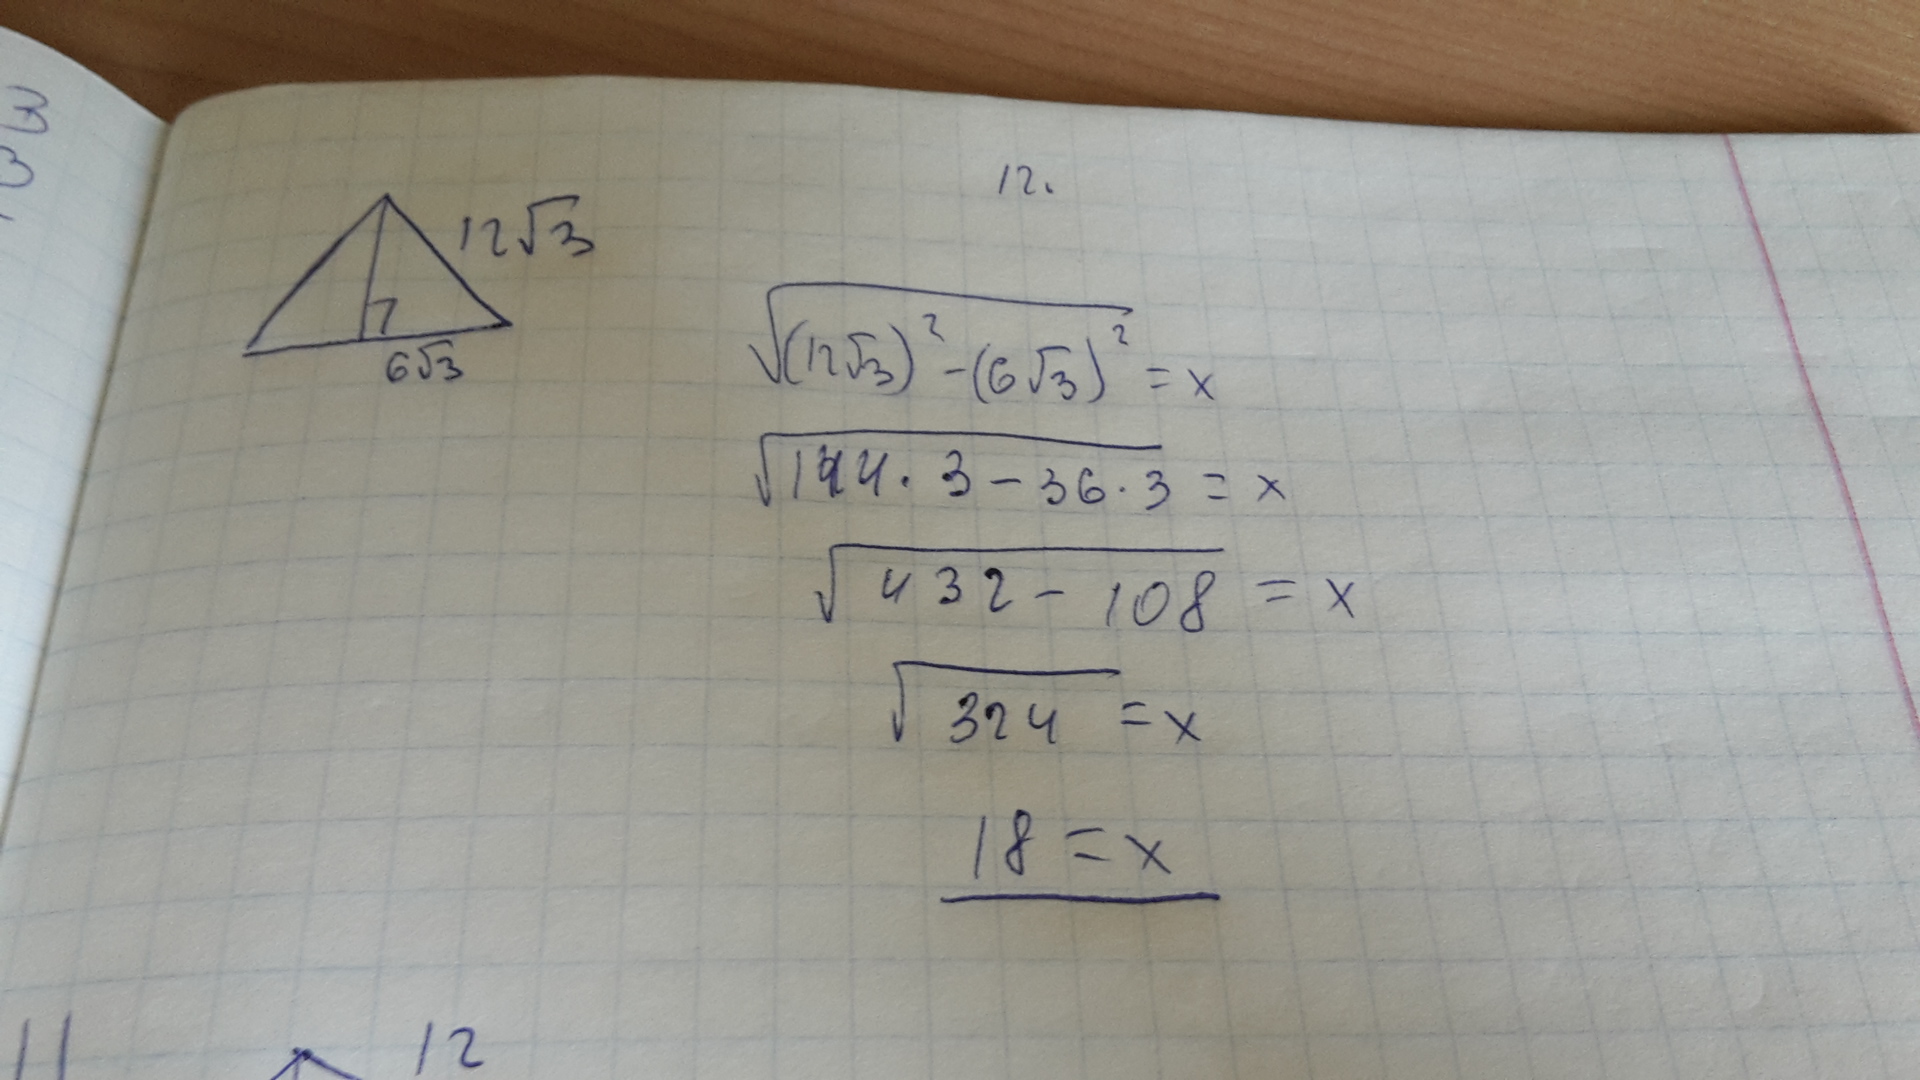 12.
12√3
6√3
√((12√3)² - (6√3)²) = x
√(144 · 3 - 36 · 3) = x
√(432 - 108) = x
√324 = x
18 = x
11
12